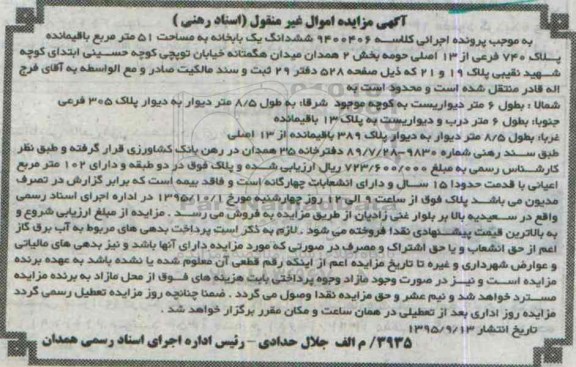 آگهی مزایده اموال غیر منقول (اسناد رهنی)
به موجب پرونده اجرائی کلاسه ۹۴۰۰۴۰۶ ششدانگ یک بابخانه به مساحت ۵۱ متر مربع باقیمانده
پلاک ۷۴۰ فرعی از ۱۳ اصلی حومه بخش ۲ همدان میدان هگمتانه خیابان توپچی کوچه حسینی ابتدای کوچه
شهید نقیبی پلاک ۱۹ و ۲۱ که ذیل صفحه ۵۲۸ دفتر ۲۹ ثبت و سند مالکیت صادر و مع الواسطه به آقای فرج
اله قادر منتقل شده است و محدود است به
شمالا : بطول ۶ متر دیواریست به کوچه موجود شرقا: به طول ۸/۵ متر دیوار به دیوار پلاک ۳۰۵ فرعی
جنوبا: بطول ۶ متر درب و دیواریست به پلاک ۱۳ باقیمانده
غربا: بطول ۸/۵ متر دیوار به دیوار پلاک ۳۸۹ باقیمانده از ۱۳ اصلی
طبق سند رهنی شماره ۹۸۳۰-۸۹/۷/۲۸ دفترخانه ۳۵ همدان در رهن بانک کشاورزی قرار گرفته و طبق نظر
کارشناس رسمی به مبلغ ۷۲۳/۶۰۰/۰۰۰ ریال ارزیابی شده و پلاک فوق در دو طبقه و دارای ۱۰۲ متر مربع
اعیانی با قدمت حدودا ۱۵ سال و دارای انشعابات چهارگانه است و فاقد بیمه است که برابر گزارش در تصرف
مدیون می باشد پلاک فوق از ساعت ۹ الی ۱۲ روز چهارشنبه مورخ ۱۳۹۵/۱۰/۱ در اداره اجرای اسناد رسمی
واقع در سعیدیه بالا بر بلوار غنی زادیان از طریق مزایده به فروش می رسد . مزایده از مبلغ ارزیابی شروع و
به بالاترین قیمت پیشنهادی نقدا فروخته می شود . لازم به ذکر است پرداخت بدهی های مربوط به آب برق گاز
اعم از حق انشعاب و یا حق اشتراک و مصرف در صورتی که مورد مزایده دارای آنها باشد و نیز بدهی های مالیاتی
و عوارض شهرداری و غیره تا تاریخ مزایده اعم از اینکه رقم قطعی آن معلوم شده یا نشده باشد به عهده برنده
مزایده است و نیز در صورت وجود مازاد وجوه پرداختی بابت هزینه های فوق از محل مازاد به برنده مزایده
مسترد خواهد شد و نیم عشر و حق مزایده نقدا وصول می گردد . ضمنا چنانچه روز مزایده تعطیل رسمی گردد
مزایده روز اداری بعد از تعطیلی در همان ساعت و مکان مقرر برگزار خواهد شد .
تاریخ انتشار ۱۳۹۵/۹/۱۳
۳۹۳۵/ م الف جلال حدادی - رئیس اداره اجرای اسناد رسمی همدان